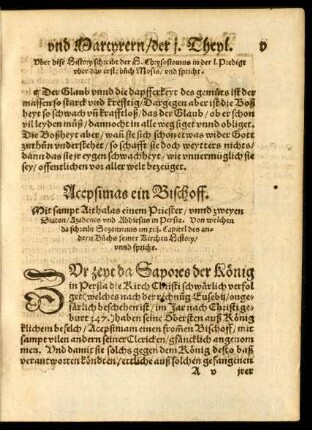 vnd Martyrern/der j. Theyl. v
Vber dise History schreibt der S. Chrysostomus in der j. Predigt
vber das erst buch Mosis/ vnd spricht.
Der Glaub vnnd die dapfferkeyt des gemüts ist der
massen so starck vnd krefftig/ Dargegen aber ist die Boß
heyt so schwach vñ krafftloß/ das der Glaub/ ob er schon
vil leyden muß/ dannocht in alle weg siget vnnd obliget.
Die Boßheyt aber/ wañ sie sich schon et was wider Gott
zuthůn vnderstehet/ so schafft sie doch weytters nichts/
dann das sie jr eygen schwachheyt/ wie vnuermüglich sie
sey/ offentlichen vor aller welt bezeüget.
Acepsimas ein Bischoff.
Mit sampt Aithalas einem Priester/ vnnd zweyen
Diacon/ Azadenes vnd Abdiesus in Persia. Von wölchen
da schreibt Sozomenus im xiij. Capitel des an-
dern Buchs seiner Kirchen History/
vnnd spricht.
ZUr zeyt da Sapores der König
in Persia die Kirch Christi schwärlich verfol
get/ welches nach der rechnung Eusebij/ onge-
färlich beschehen ist/ im Jar nach Christi ge-
burt 347.) haben seine Obersten auß König
klichem befelch/ Acepsimam einen frommen Bischoff/ mit
sampt vilen andern seiner Clericken/ gfäncklich angenom
men. Vnd damit sie solchs gegen dem König desto baß
verantworten köndten/ ettliche auß solchen gefangenen
A v jrer